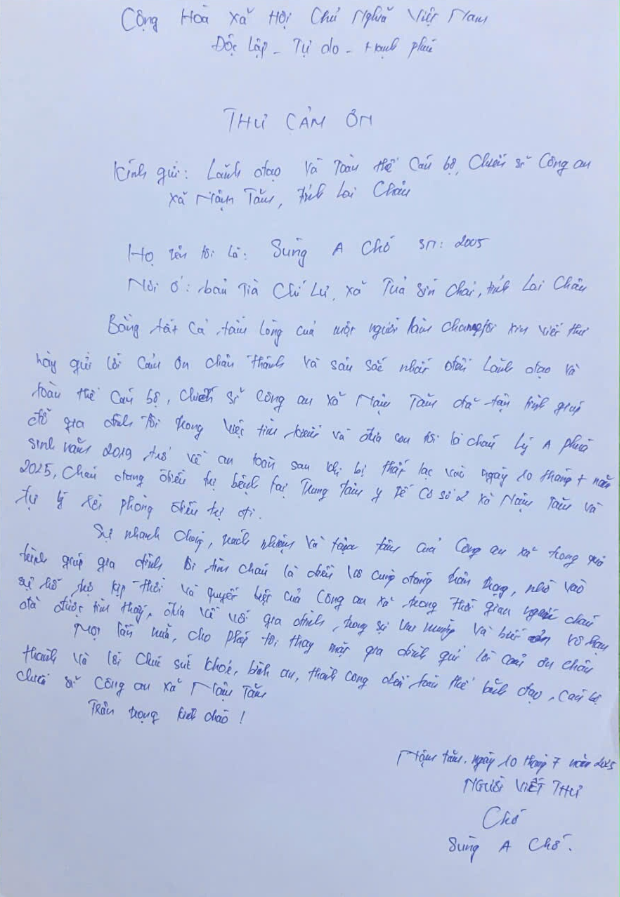 Cộng Hoà Xã Hội Chủ Nghĩa Việt Nam
Độc Lập - Tự do - Hạnh phúc
THƯ CẢM ƠN
Kính gửi: Lãnh đạo và Toàn thể Cán bộ, Chiến sĩ Công an
xã Nậm Tăm, tỉnh Lai Châu
Họ tên tôi là: Sùng A Chố SN: 2005
Nơi ở: bản Tìa Chí Lư, xã Tủa Sín Chải, tỉnh Lai Châu
Bằng tất cả tấm lòng của một người làm cha tôi xin viết thư
này gửi lời cảm ơn chân thành và sâu sắc nhất đến Lãnh đạo và
toàn thể Cán bộ, chiến sĩ Công an xã Nậm Tăm đã tận tình giúp
đỡ gia đình tôi trong việc tìm kiếm và đưa con tôi là cháu Lý A
sinh năm 2019 trở về an toàn sau khi bị thất lạc vào ngày 10 tháng 7 năm
2025, Cháu đang điều trị bệnh tại Trung tâm y tế Cơ sở 2 xã Nậm Tăm và
tự ý rời phòng điều trị đi.
Sự nhanh chóng, trách nhiệm và tận tâm của Công an xã trong quá
trình giúp gia đình tôi tìm cháu là điều vô cùng đáng trân trọng, nhờ vào
sự hỗ trợ kịp thời và quyết liệt của Công an xã trong thời gian ngắn cháu
đã được tìm thấy, đưa về với gia đình, trong sự vui mừng và biết ơn vô hạn
Một lần nữa, cho phép tôi thay mặt gia đình gửi lời cảm ơn chân
thành và lời chúc sức khoẻ, bình an, thành công đến toàn thể lãnh đạo, cán bộ
chiến sĩ Công an xã Nậm Tăm
Trân trọng kính chào!
Nậm tăm, ngày 10 tháng 7 năm 2025
NGƯỜI VIẾT THƯ
Chố
Sùng A Chố.